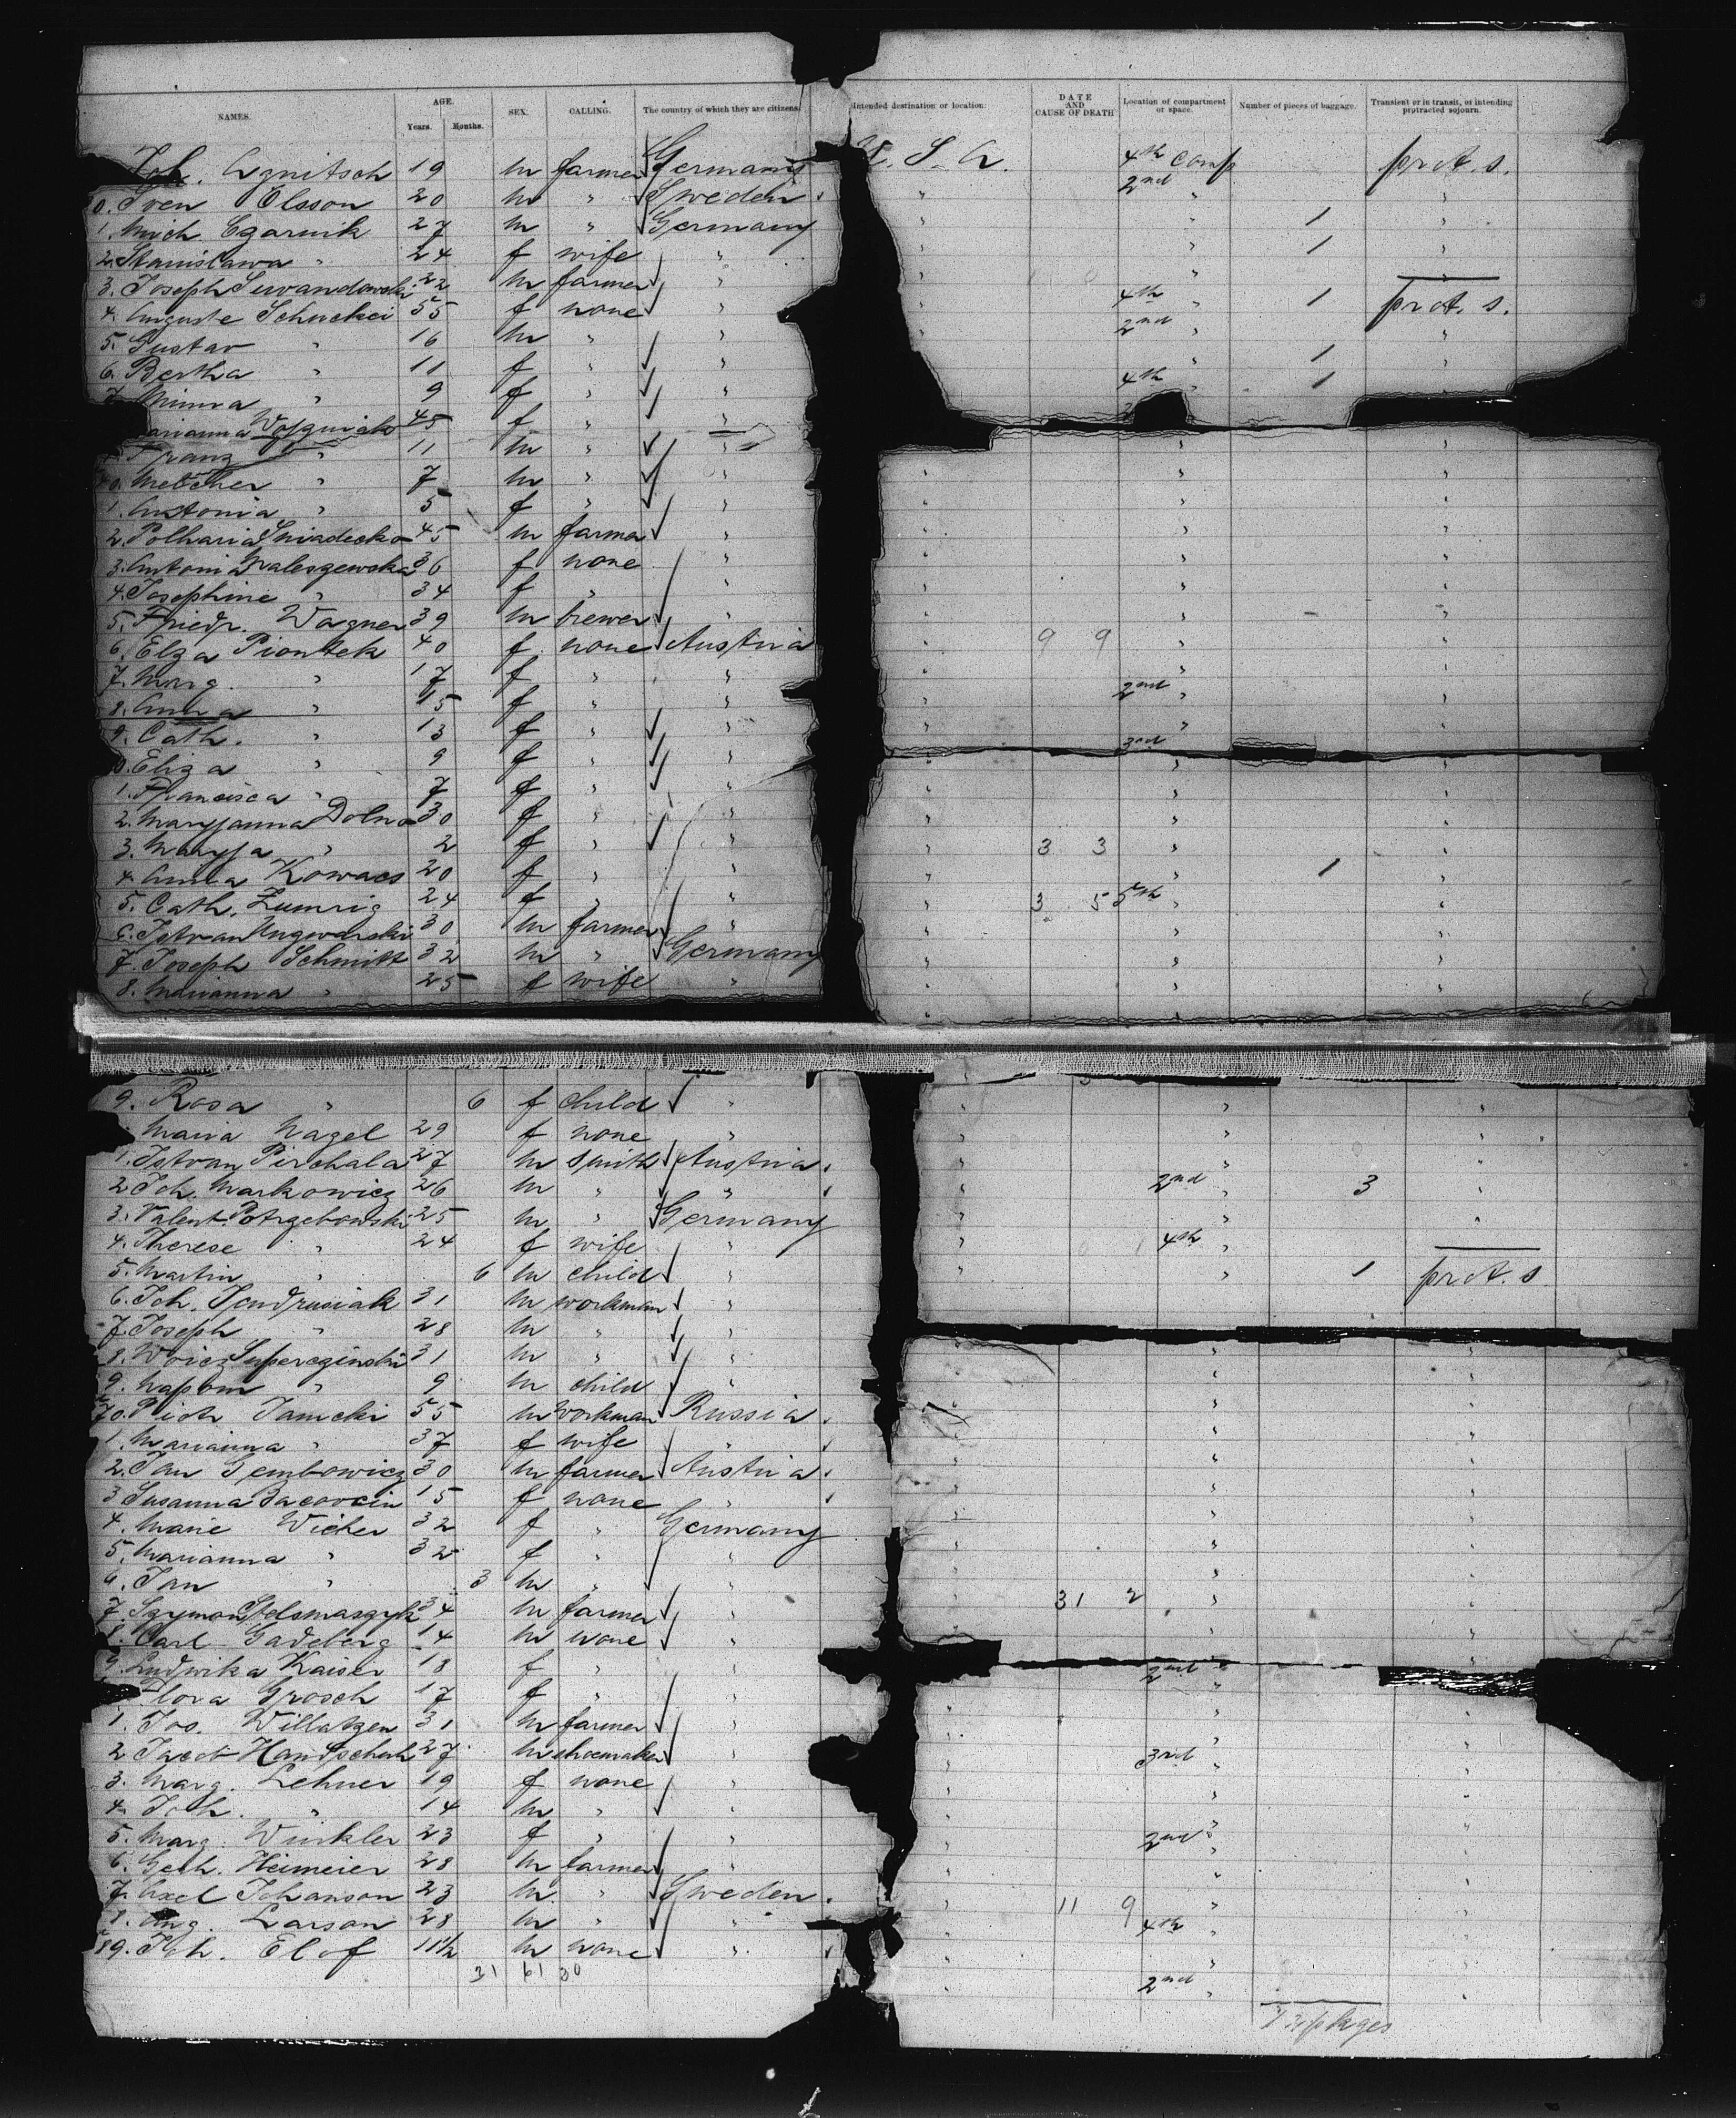 NAMES. AGE. Years. Months. SEX. CALLING. The country of which they are citizens. Intended destination or location: DATE AND CAUSE OF DEATH Location of compartment or space. Number of pieces of baggage. Transient or in transit, or intending protracted sojourn.
Joh. Agnitsch 19 m farmer Germany U. S. A. 4th Comp prot. s.
0. Sven Olsson 20 m " Sweden " 2nd " "
1. Mich. Czarnik 27 m " Germany " " 1 "
2. Stanislawa " 24 f wife " " " 1 "
3. Joseph Lewandowski 22 m farmer " " " "
4. Auguste Schuckei 55 f none " " 4th " 1 prot. s.
5. Gustav " 16 m " " 2nd "
6. Bertha " 11 f " " " 1 "
7. Minna " 9 f " " 4th " 1
arianna Wozniak 45 f " "
Franz " 11 m " " " "
0. Melcher " 7 m " " " " "
1. Antonia " 5 f " " " " "
2. Polharia Sniadecka 45 m farmer " " " "
3. Antonia Maleszewska 36 f none " " " "
4. Josephine " 34 f " " " " "
5. Friedr. Wagner 39 m brewer " " " "
6. Elza Piontek 40 f none Austria " 9 9 " "
7. Marg. " 17 f " " " " "
8. Anna " 15 f " " " 2nd " "
9. Cath. " 13 f " " " " "
0. Eliza " 9 f " " 3rd
1. Francisca " 7 f " " " " "
2. Maryanna Dolna 30 f " " " " "
3. Maryja " 2 f " " " 3 3 " "
4. Anna Kowacs 20 f " " " " 1 "
5. Cath. Zumrig 24 f " " " 3 5 5th " "
6. Istvan Ungwarski 30 m farmer " " " "
7. Joseph Schmitt 32 m " Germany " " "
8. Marianna " 25 f wife " " " "
9. Rosa " 6 f child " " " "
Maria Nagel 29 f none " " " "
1. Istvan Pirchala 27 m smith Austria. " " "
2. Joh. Markowicz 26 m " " " 2nd " 3 "
3. Valent. Potrzebowski 25 m " Germany " " "
4. Therese " 24 f wife " " 4th "
5. Martin " 6 m child " " " 1 prot. s
6. Joh. Jendrusiak 31 m workman "
7. Joseph " 28 m " "
8. Woicz Superczinski 31 m " " " "
9. " 9 m child " " "
70. Piotr Janicki 55 m workman Russia. " "
1. Marianna " 37 f wife " " "
2. Jan Gembowicz 30 m farmer Austria. " "
3 Susanna 15 f none " " "
4. Marie Wicher 32 f " Germany " "
5. Marianna " 32 f " " " "
6. Jan " 3 m " " " "
7. Szymon Stelsmaszyk 34 m farmer " 31 2 " "
8. Carl Gadeberg 14 m none " " "
9. Ludwika Kaiser 18 f " " "
Flora Grosch 17 f " " 2nd "
1. Jos. Willatzen 31 m farmer " " " "
2 Jacob Handschuh 27 m shoemaker " " " "
3. Marg. Lehner 19 f none " " 3rd " "
4. Joh. " 14 m " " " " "
5. Marg. Winkler 23 f " " " " "
6. Geth. Heimeier 28 m farmer " " 2nd " "
7. Axel Johanson 23 m " Sweden. " " "
8. Aug. Larson 28 m " " " 11 9 4th " "
89. Joh. Elof 11½ m none " " " "
31 61 30
2nd " "